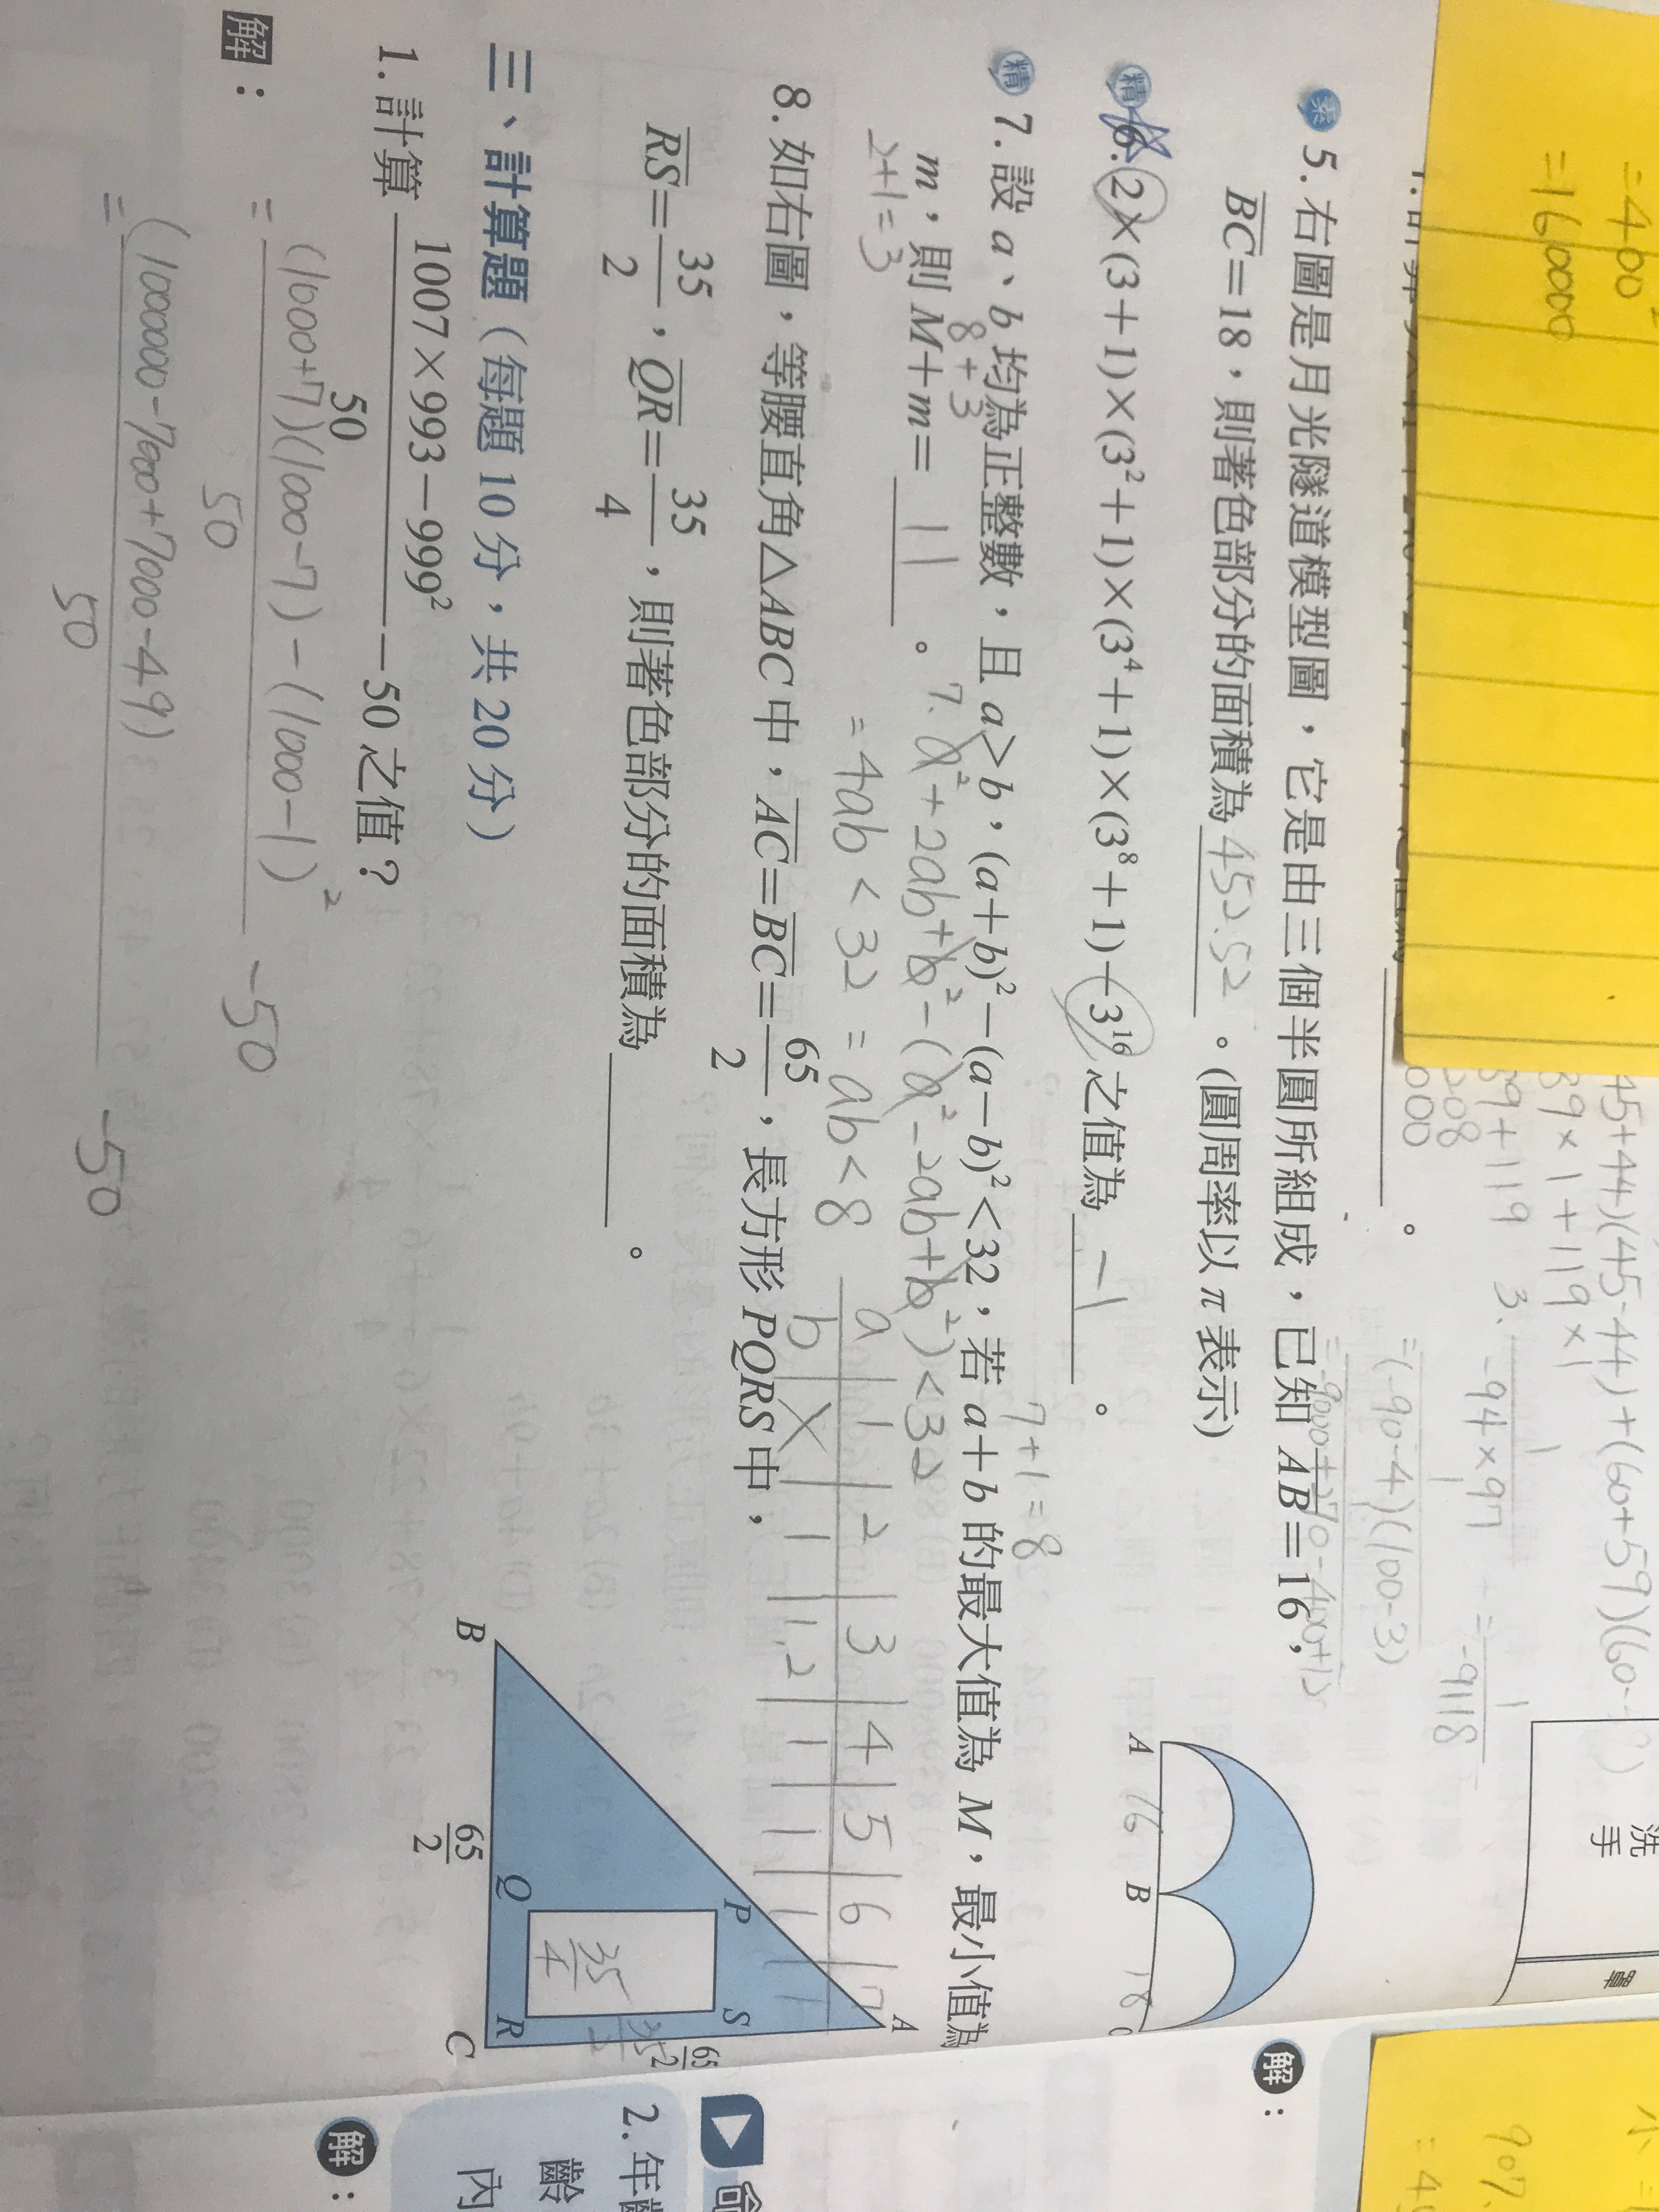 =-400
=160000
45+44)(45-44)+(60+59)(60-
39×1+119×1
39+119
208
000
3.
-94×97
=(-90-4)(100-3)
=-9118
洗手
素 5. 右圖是月光隧道模型圖，它是由三個半圓所組成，已知 AB=16，
BC=18，則著色部分的面積為 452.52 。(圓周率以 π 表示)
A 16 B 18
精 6. 2×(3+1)×(3²+1)×(3⁴+1)×(3⁸+1)-3¹⁶之值為 -1 。
7+1=8
精 7. 設 a、b 均為正整數，且 a>b，(a+b)²-(a-b)²<32，若 a+b 的最大值為 M，最小值為
8+3
m，則 M+m= 11 。
2+1=3
7. a²+2ab+b²-(a²-2ab+b²)<32
=4ab<32=ab<8
a 1 2 3 4 5 6 7
b X 1 1,2 1 1 1 1
8. 如右圖，等腰直角△ABC 中，AC=BC=65/2，長方形 PQRS 中，
RS=35/2，QR=35/4，則著色部分的面積為 。
A
P S
35/4 35/2 65/2
B Q R C
65/2
三、計算題（每題 10 分，共 20 分）
1. 計算 (1007×993-999²)/50 -50 之值？
解：
=((1000+7)(1000-7)-(1000-1)²)/50 -50
=(1000000-7000+7000-49)/50 -50
解：
命
2. 年齡
內
解：
907
=4